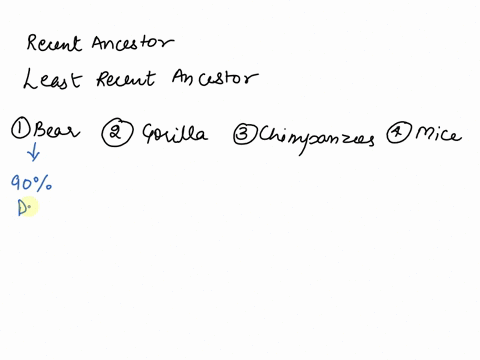 Recent Ancestor
Least Recent Ancestor
① Bear ② Gorilla ③ Chimpanzees ④ Mice
↓
90%
D